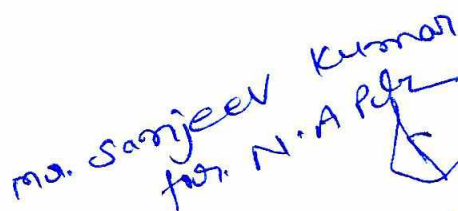 Mr. Sanjeev Kumar
for. N. A